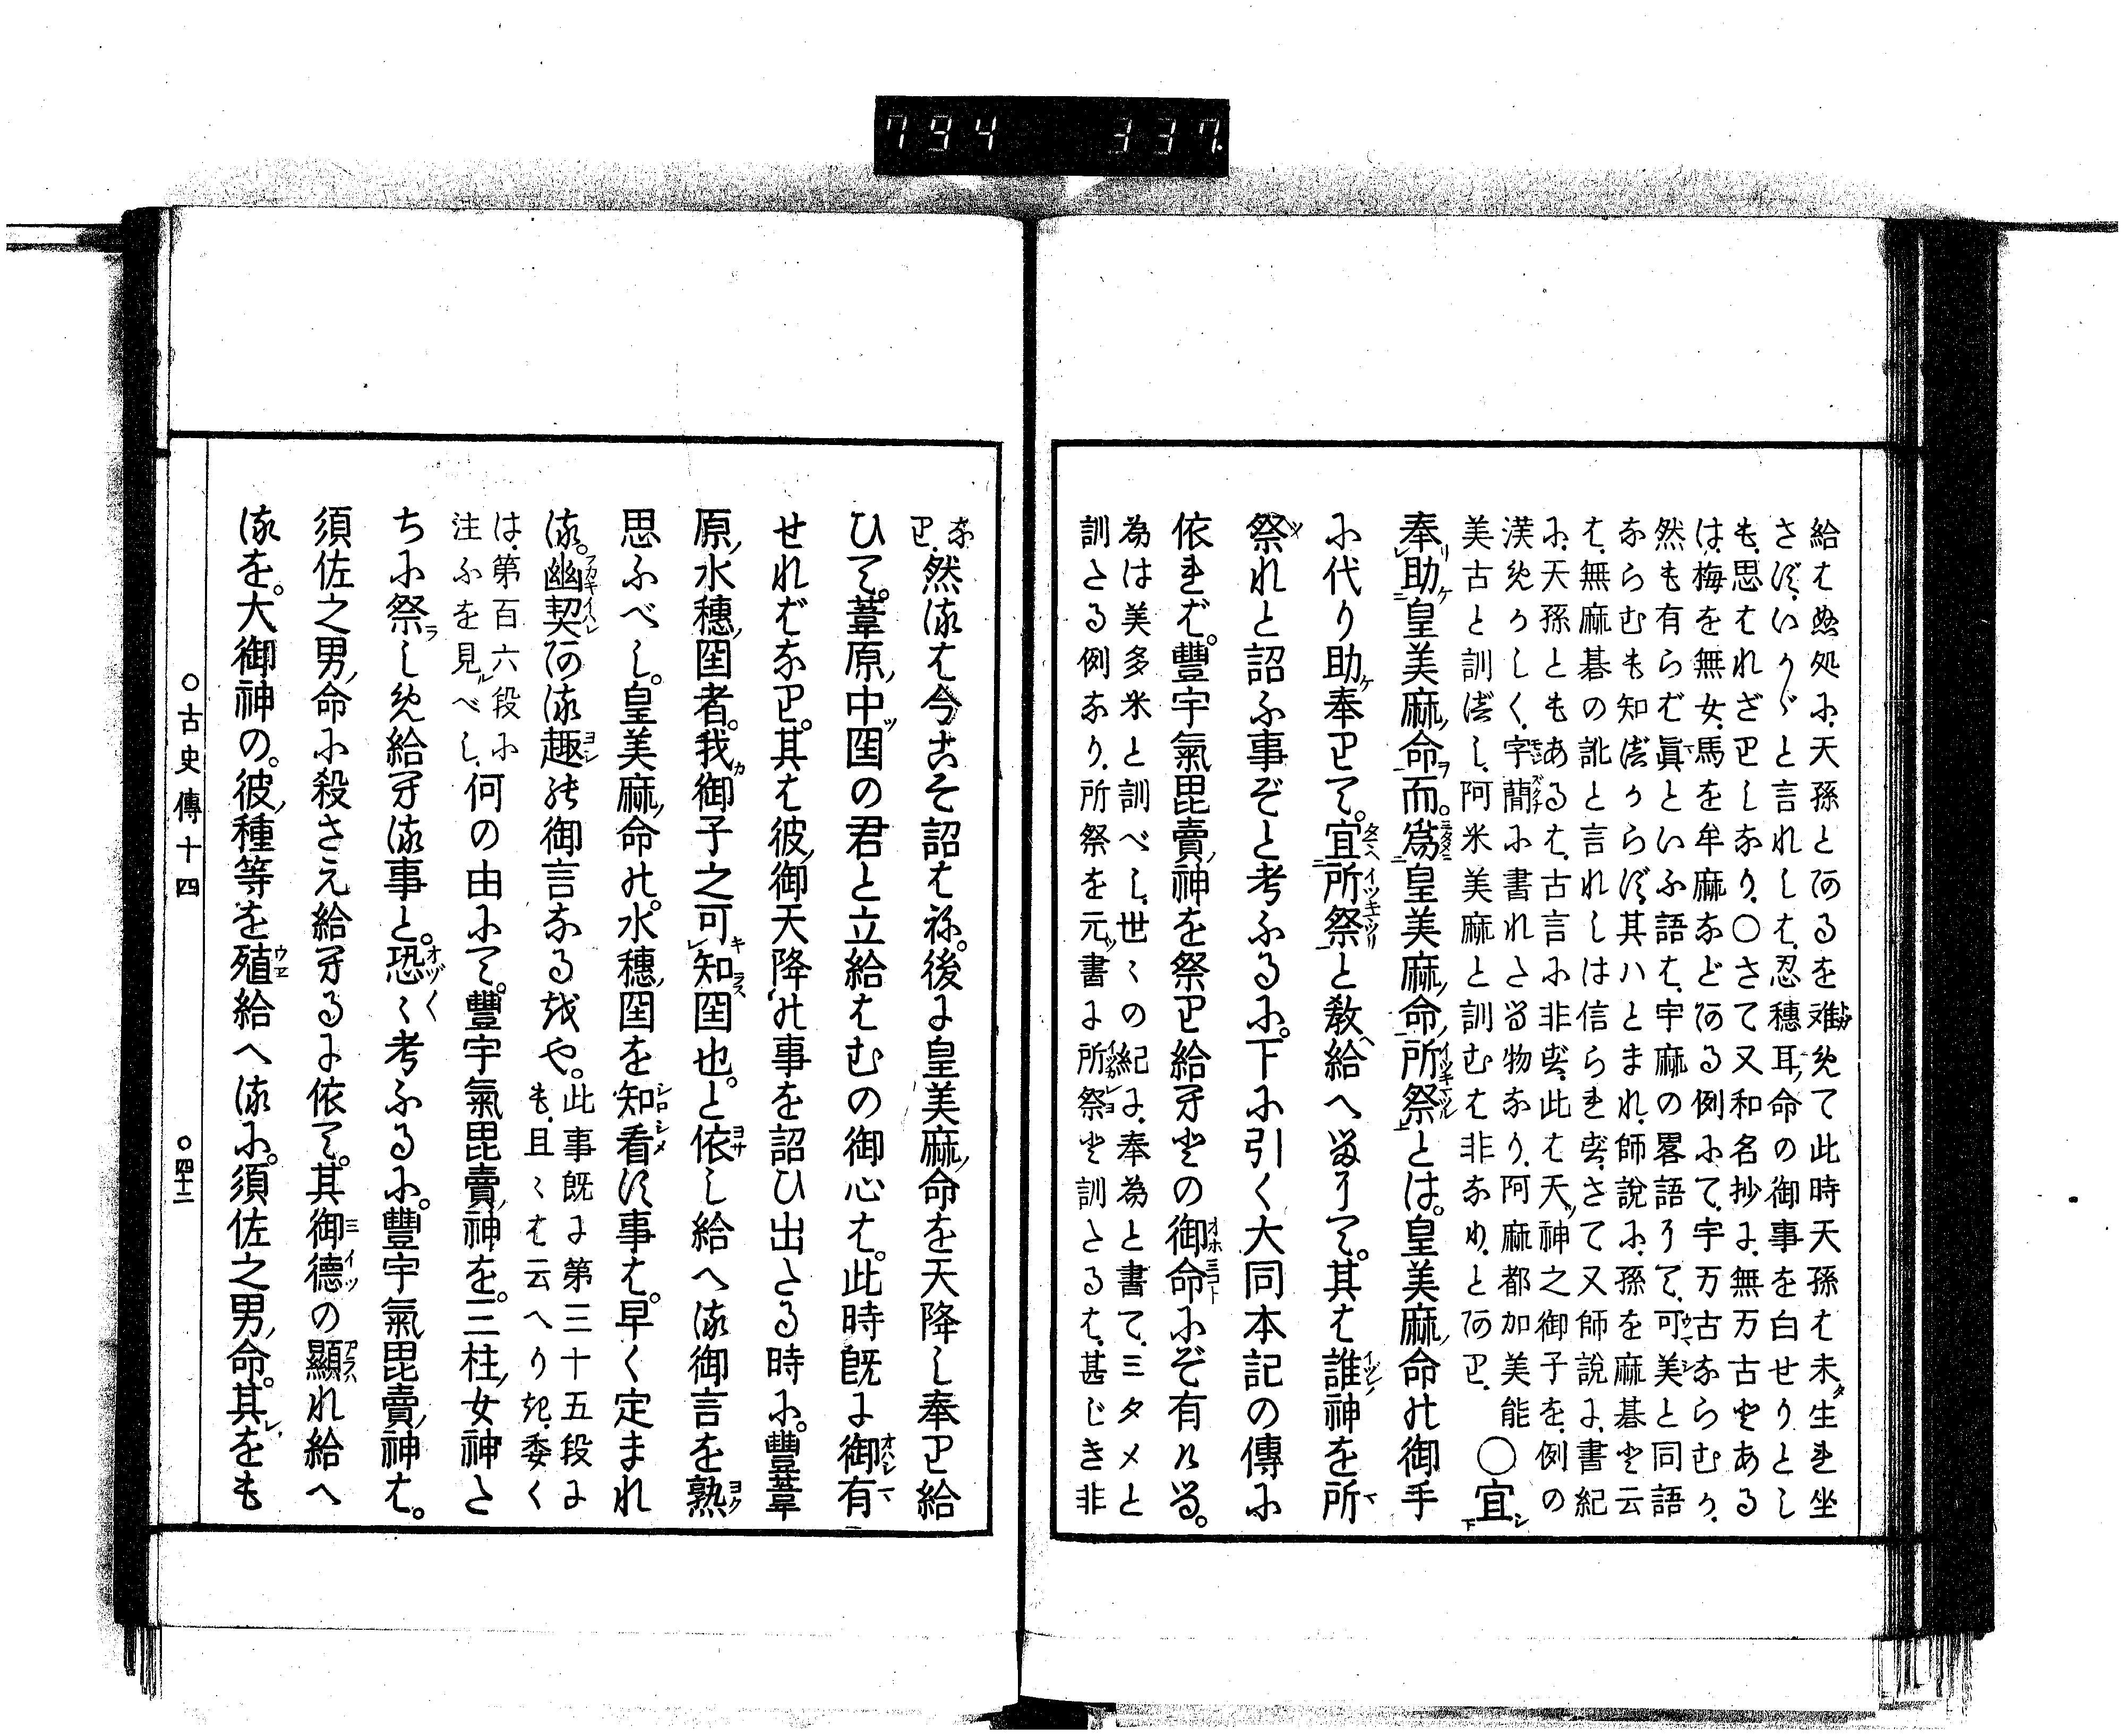 794 337.
給はぬ処に、天孫とあるを难めて此時天孫は未生れ坐
さず、いかゞと言れしは、忍穗耳命の御事を白せりとし
も、思はれざりしなり、○さて又和名抄に、無万古とある
は、梅を無女、馬を牟麻などある例にて、宇万古ならむか、
然も有らば眞といふ語は、宇麻の畧語うて、可美と同語
ならむも知ばからず、其ハとまれ、師說に、孫を麻碁と云
は、無麻碁の訛と言れしは信られず、さて又師說に、書紀
に、天孫ともあるは、古言に非ず、此は天神之御子を、例の
漢めかしく、字簡に書れたる物なり、阿麻都加美能
美古と訓ばし、阿米美麻と訓むは非なり、とあり、○宜
奉助皇美麻命而。爲皇美麻命所祭とは。皇美麻命の御手
に代り助奉りて。宜所祭と敎給へるうて。其は誰神を所
祭れと詔ふ事ぞと考ふるに。下に引く大同本記の傳に
依れば。豐宇氣毘賣神を祭り給ふとの御命にぞ有ける。
為は美多米と訓べし、世〻の紀に、奉為と書て、ミタメと
訓たる例なり、所祭を元書に所祭と訓たるは、甚じき非
なり、然るは今こそ詔はね。後に皇美麻命を天降し奉り給
ひて。葦原中国の君と立給はむの御心は。此時既に御有
せればなり。其は彼御天降の事を詔ひ出たる時に。豐葦
原水穗国者。我御子之可知国也。と依し給へる御言を熟
思ふべし。皇美麻命の。水穗国を知看す事は。早く定まれ
る。幽契ある趣の御言なるをや。此事既に第三十五段に
も、且〻は云へりき、委く
は、第百六段に
注ふを見べし、何の由にて。豐宇氣毘賣神を。三柱女神た
ちに祭しめ給ふる事と。恐〻考ふるに。豐宇氣毘賣神は。
須佐之男命に殺さえ給ふるに依て。其御德の顯れ給へ
るを。大御神の。彼種等を殖給へるに。須佐之男命。其をも
○古史傳十四 ○四十二